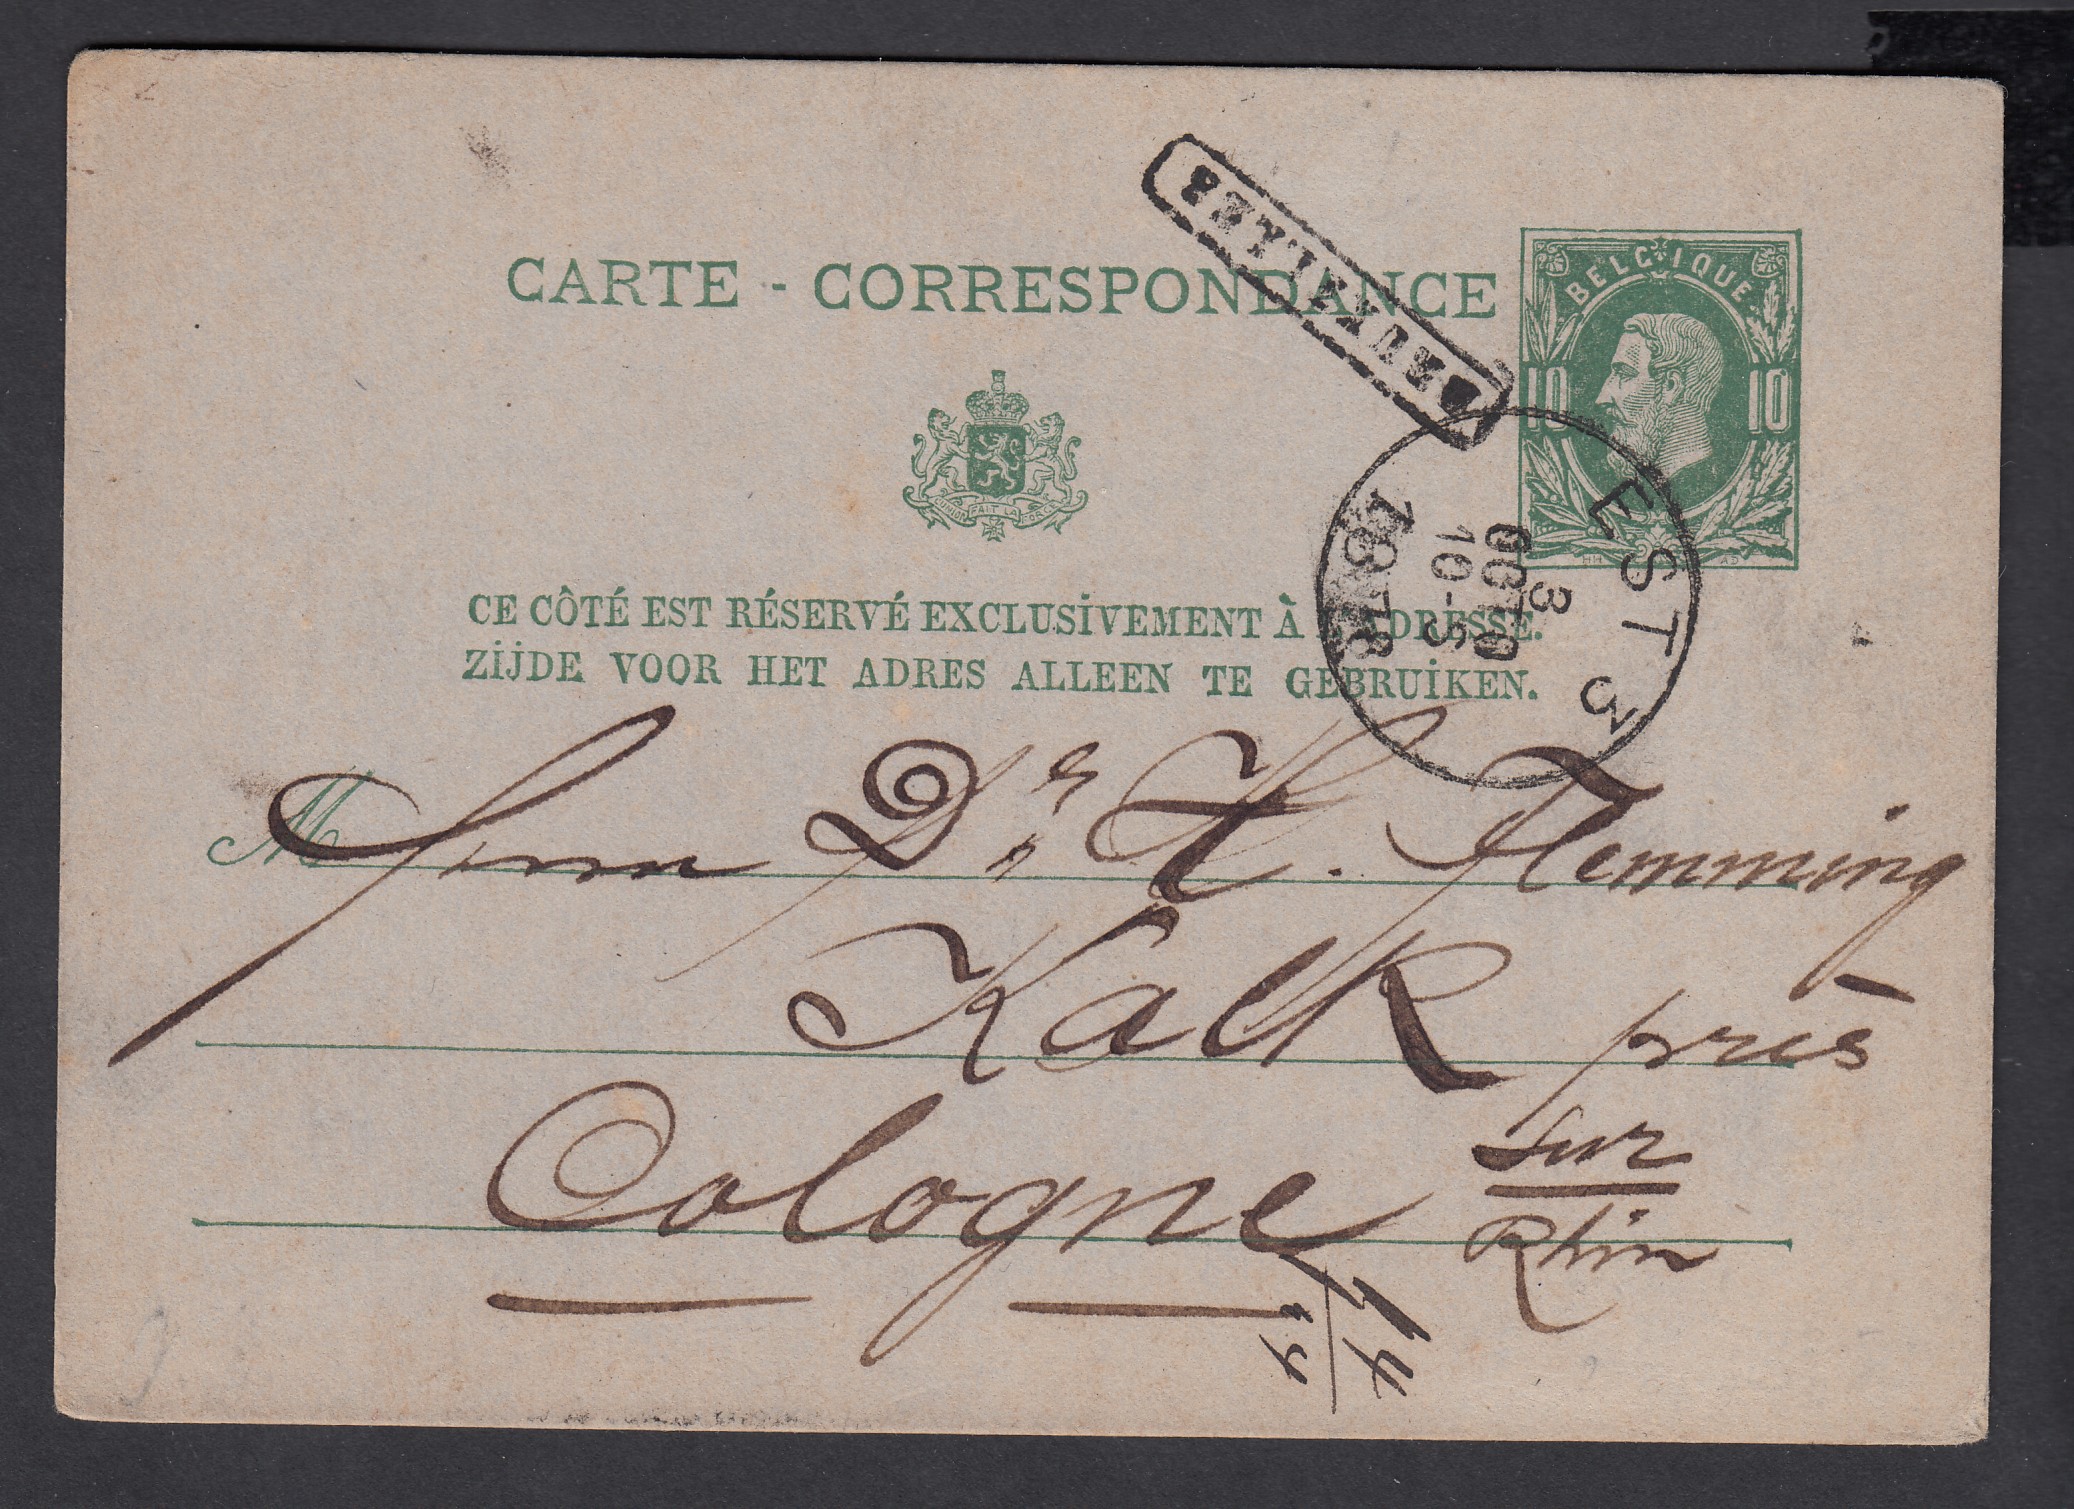 BRUXELLES
CARTE - CORRESPONDANCE
BELGIQUE
10 10
L'UNION FAIT LA FORCE
EST 3
3
OCTO
10-S
1878
CE CÔTÉ EST RÉSERVÉ EXCLUSIVEMENT À L'ADRESSE.
ZIJDE VOOR HET ADRES ALLEEN TE GEBRUIKEN.
M
Herrn Dr H. Flemming
Kalk près
Cologne sur
Rhin